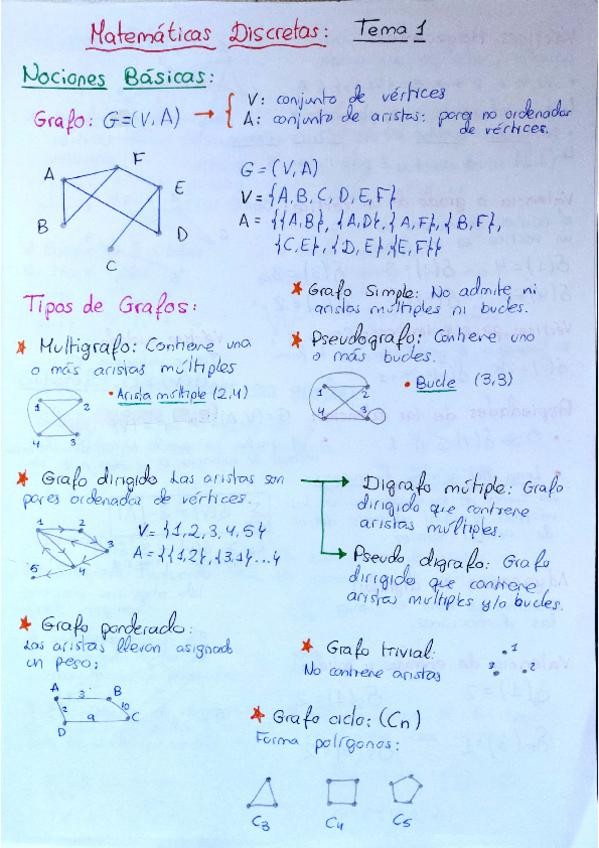 Matemáticas Discretas: Tema 1
Nociones Básicas:
Grafo: G=(V, A) → { V: conjunto de vértices
A: conjunto de aristas: pares no ordenados
de vértices.
A F E B D C
G = (V, A)
V = {A, B, C, D, E, F}
A = {{A, B}, {A, D}, {A, F}, {B, F},
{C, E}, {D, E}, {E, F}}
Tipos de Grafos:
★ Grafo Simple: No admite ni
aristas múltiples ni bucles.
★ Multigrafo: Contiene una
o más aristas múltiples
1 2 4 3
• Arista múltiple (2,4)
★ Pseudografo: Contiene uno
o más bucles.
1 2 4 3
• Bucle (3,3)
★ Grafo dirigido Las aristas son
pares ordenados de vértices.
1 2 3 4 5
V = {1, 2, 3, 4, 5}
A = {{1,2}, {3,1} ... }
→ Digrafo múltiple: Grafo
dirigido que contiene
aristas múltiples.
→ Pseudo digrafo: Grafo
dirigido que contiene
aristas múltiples y/o bucles.
★ Grafo ponderado:
Las aristas llevan asignado
un peso:
A 3 B
2 10
D 9 C
★ Grafo trivial:
No contiene aristas
1 2 3
★ Grafo ciclo: (Cn)
Forma polígonos:
C3 C4 C5